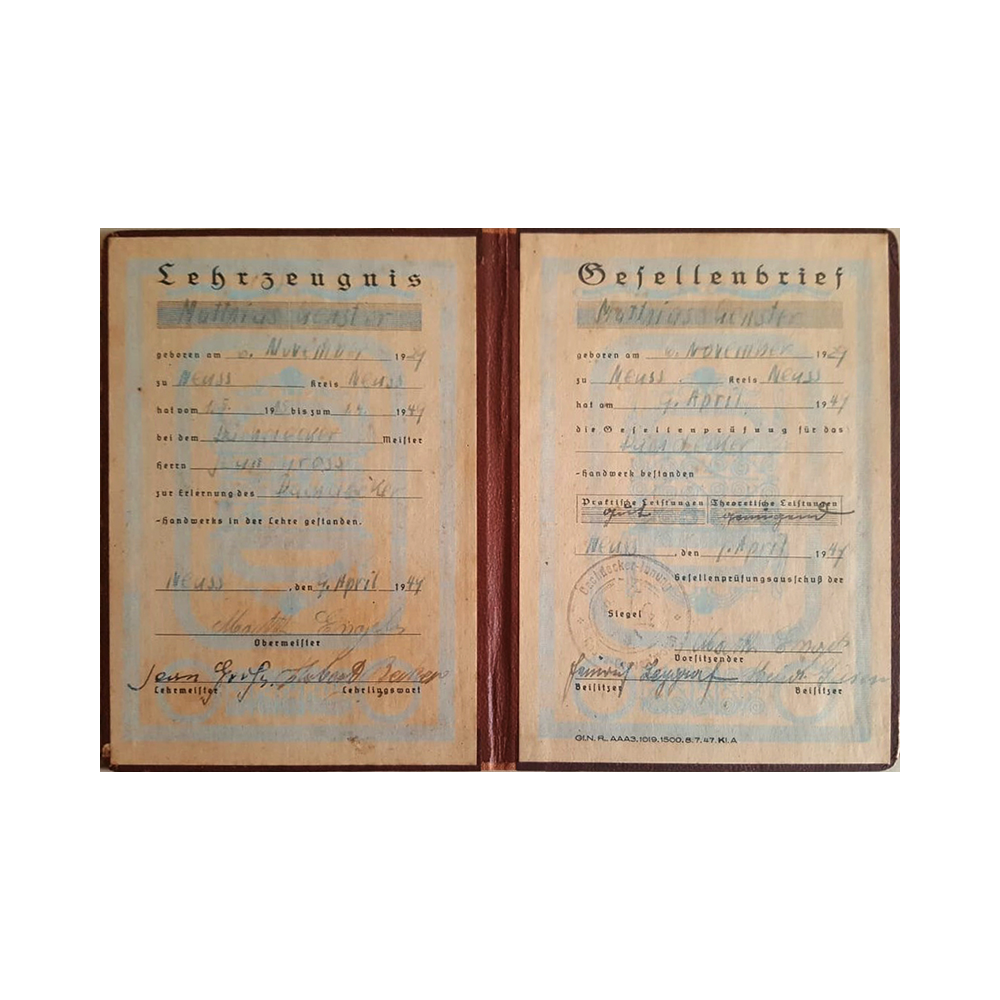 Lehrzeugnis
Matthias Genster
geboren am 6. November 1929
zu Neuss Kreis Neuss
hat vom 1.8. 19 bis zum 1.4. 1949
bei dem Dachdecker Meister
Herrn Jean Gross
zur Erlernung des Dachdecker
-Handwerks in der Lehre gestanden.
Neuss, den 9. April 1949
Obermeister
Lehrmeister Lehrlingswart
Gesellenbrief
Matthias Genster
geboren am 6. November 1929
zu Neuss Kreis Neuss
hat am 9. April 1949
die Gesellenprüfung für das
Dachdecker
-Handwerk bestanden
Praktische Leistungen Theoretische Leistungen
gut genügend
Neuss, den 9. April 1949
Gesellenprüfungsausschuß der
Dachdecker-Innung
Siegel
Vorsitzender
Heinrich
Beisitzer Beisitzer
Gl.N. R. AAA3. 1019. 1500. 8.7.47. Kl. A